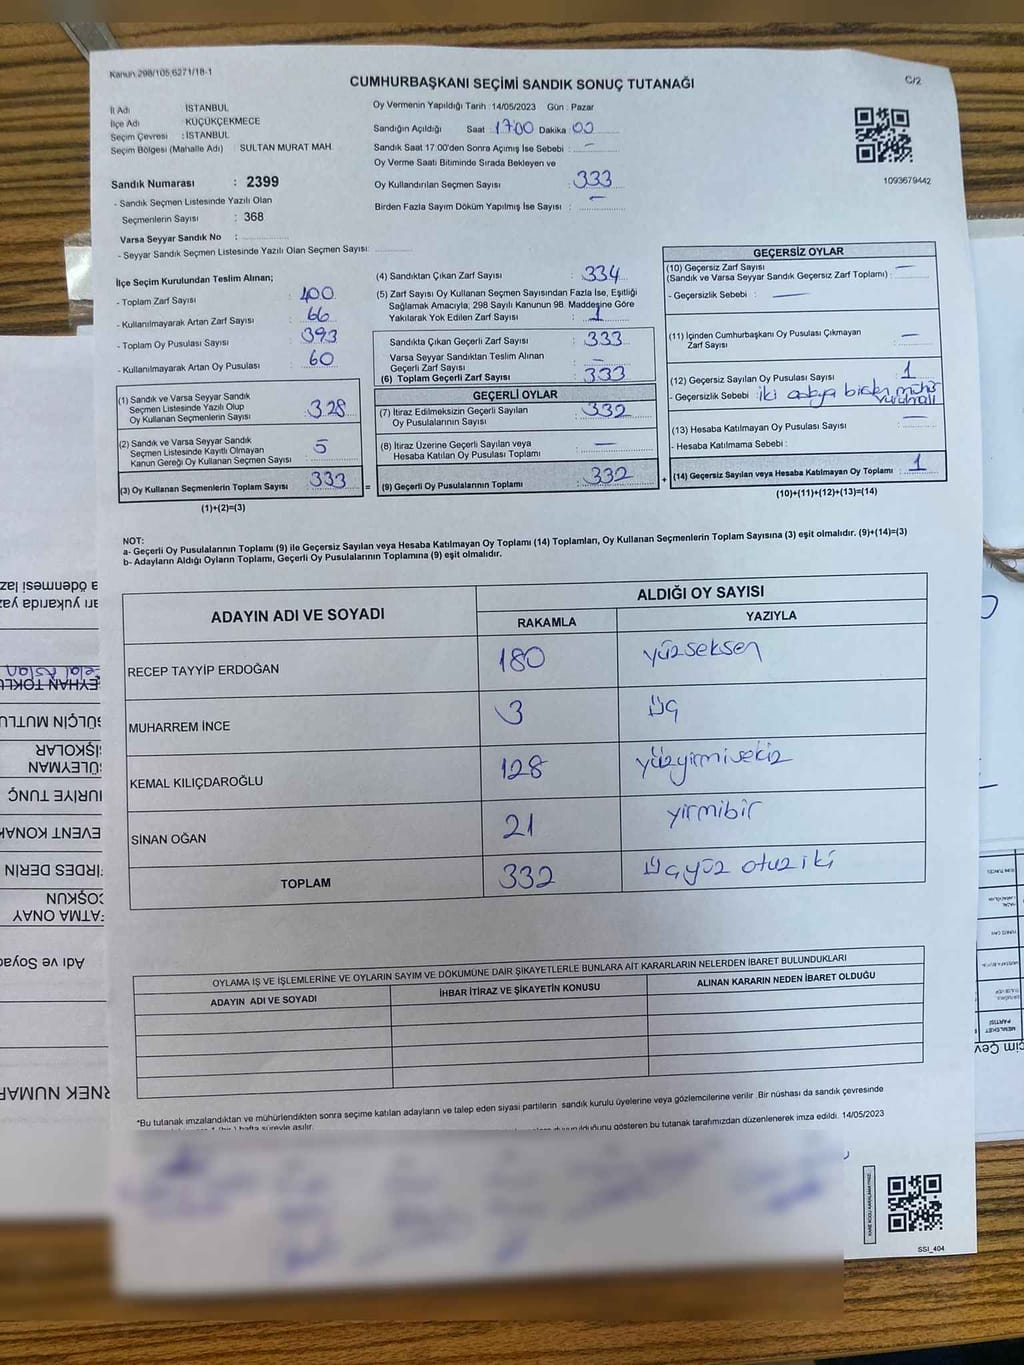 Kanun 298/105,6271/18-1
CUMHURBAŞKANI SEÇİMİ SANDIK SONUÇ TUTANAĞI
C/2
İl Adı İSTANBUL
İlçe Adı : KÜÇÜKÇEKMECE
Seçim Çevresi : İSTANBUL
Seçim Bölgesi (Mahalle Adı) SULTAN MURAT MAH.
Sandık Numarası : 2399
- Sandık Seçmen Listesinde Yazılı Olan
Seçmenlerin Sayısı : 368
Varsa Seyyar Sandık No :
- Seyyar Sandık Seçmen Listesinde Yazılı Olan Seçmen Sayısı:
Oy Vermenin Yapıldığı Tarih : 14/05/2023 Gün : Pazar
Sandığın Açıldığı Saat : 17:00 Dakika : 00
Sandık Saat 17.00'den Sonra Açımış İse Sebebi : -
Oy Verme Saati Bitiminde Sırada Bekleyen ve
Oy Kullandırılan Seçmen Sayısı : 333
Birden Fazla Sayım Döküm Yapılmış İse Sayısı : -
1093679442
İlçe Seçim Kurulundan Teslim Alınan;
- Toplam Zarf Sayısı : 400
- Kullanılmayarak Artan Zarf Sayısı : 66
- Toplam Oy Pusulası Sayısı : 393
- Kullanılmayarak Artan Oy Pusulası : 60
(1) Sandık ve Varsa Seyyar Sandık
Seçmen Listesinde Yazılı Olup
Oy Kullanan Seçmenlerin Sayısı : 328
(2) Sandık ve Varsa Seyyar Sandık
Seçmen Listesinde Kayıtlı Olmayan
Kanun Gereği Oy Kullanan Seçmen Sayısı : 5
(3) Oy Kullanan Seçmenlerin Toplam Sayısı : 333
(1)+(2)=(3)
(4) Sandıktan Çıkan Zarf Sayısı : 334
(5) Zarf Sayısı Oy Kullanan Seçmen Sayısından Fazla İse, Eşitliği
Sağlamak Amacıyla, 298 Sayılı Kanunun 98. Maddesine Göre
Yakılarak Yok Edilen Zarf Sayısı : 1
Sandıkta Çıkan Geçerli Zarf Sayısı : 333
Varsa Seyyar Sandıktan Teslim Alınan
Geçerli Zarf Sayısı : -
(6) Toplam Geçerli Zarf Sayısı : 333
GEÇERLİ OYLAR
(7) İtiraz Edilmeksizin Geçerli Sayılan
Oy Pusulalarının Sayısı : 332
(8) İtiraz Üzerine Geçerli Sayılan veya
Hesaba Katılan Oy Pusulası Toplamı : -
(9) Geçerli Oy Pusulalarının Toplamı : 332
GEÇERSİZ OYLAR
(10) Geçersiz Zarf Sayısı
(Sandık ve Varsa Seyyar Sandık Geçersiz Zarf Toplamı) : -
- Geçersizlik Sebebi : -
(11) İçinden Cumhurbaşkanı Oy Pusulası Çıkmayan
Zarf Sayısı : -
(12) Geçersiz Sayılan Oy Pusulası Sayısı : 1
- Geçersizlik Sebebi : iki adaya birden mühür
(13) Hesaba Katılmayan Oy Pusulası Sayısı : -
- Hesaba Katılmama Sebebi :
(14) Geçersiz Sayılan veya Hesaba Katılmayan Oy Toplamı : 1
(10)+(11)+(12)+(13)=(14)
NOT:
a- Geçerli Oy Pusulalarının Toplamı (9) ile Geçersiz Sayılan veya Hesaba Katılmayan Oy Toplamı (14) Toplamları, Oy Kullanan Seçmenlerin Toplam Sayısına (3) eşit olmalıdır. (9)+(14)=(3)
b- Adayların Aldığı Oyların Toplamı, Geçerli Oy Pusulalarının Toplamına (9) eşit olmalıdır.
ADAYIN ADI VE SOYADI ALDIĞI OY SAYISI
RAKAMLA YAZIYLA
RECEP TAYYİP ERDOĞAN 180 yüzseksen
MUHARREM İNCE 3 üç
KEMAL KILIÇDAROĞLU 128 yüzyirmisekiz
SİNAN OĞAN 21 yirmibir
TOPLAM 332 üçyüz otuziki
OYLAMA İŞ VE İŞLEMLERİNE VE OYLARIN SAYIM VE DÖKÜMÜNE DAİR ŞİKAYETLERLE BUNLARA AİT KARARLARIN NELERDEN İBARET BULUNDUKLARI
ADAYIN ADI VE SOYADI İHBAR İTİRAZ VE ŞİKAYETİN KONUSU ALINAN KARARIN NEDEN İBARET OLDUĞU
*Bu tutanak imzalandıktan ve mühürlendikten sonra seçime katılan adayların ve talep eden siyasi partilerin sandık kurulu üyelerine veya gözlemcilerine verilir .Bir nüshası da sandık çevresinde
olduğunu gösteren bu tutanak tarafımızdan düzenlenerek imza edildi. 14/05/2023
SSI_404
a ödenmesi laz
arı yukarıda yaz
EYHAN TOKLU
GÜLÇİN MUTLU
İŞKOLAR
SÜLEYMAN
URİYE TUNÇ
EVENT KONAK
FİRDES DERİN
COŞKUN
FATMA ONAY
Adı ve Soyad
RNEK NUMAR